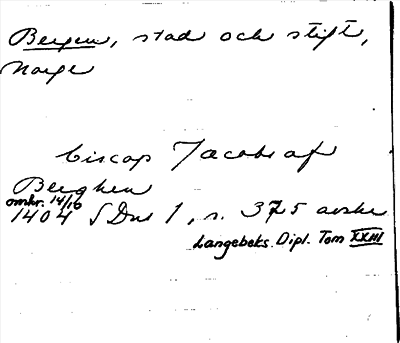 Bergen, stad och stift,
Norge
biscop Jacob af
Berghen
omkr. 14/10
1404 SDns 1, s. 375 avskr
Langebeks Dipl. Tom XXIII